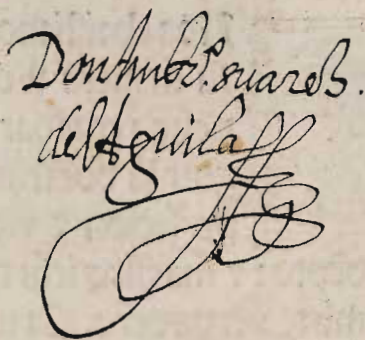 Don Ambr.º suares.
del Aguila